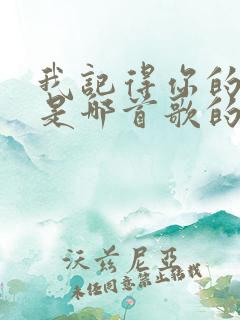 我記得你的
是哪首歌的
沃兹尼亞
未经同意禁止转载